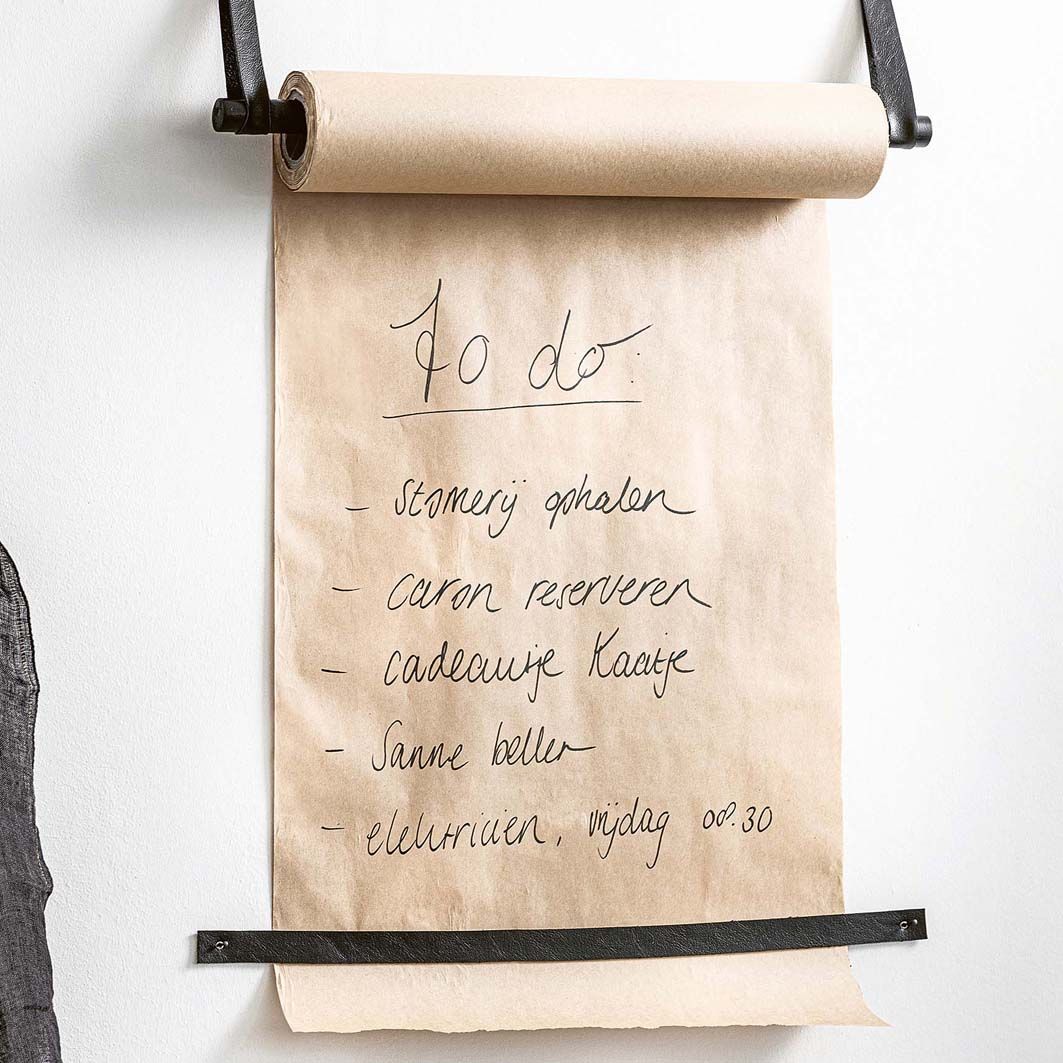 To do:
- Stomerij ophalen
- Caron reserveren
- cadeautje Kaatje
- Sanne bellen
- elektricien, vrijdag 08.30